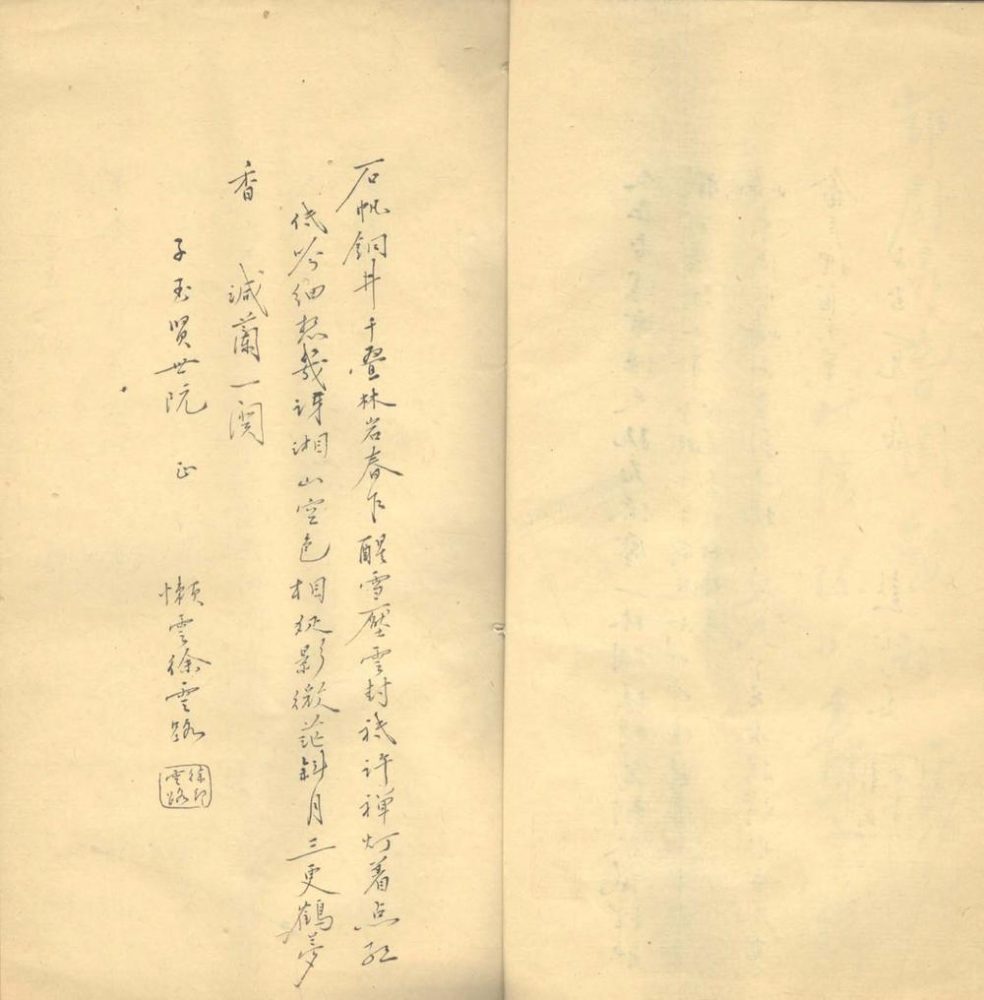 石帆銅井千叠林岩春乍醒雪壓雲封祇许禅灯着点红
低吟细想幾讶湘山空色相影微茫斜月三更鶴夢
香　減蘭一阕
子玉賢世阮　正　懶雲徐雲路
徐印雲路